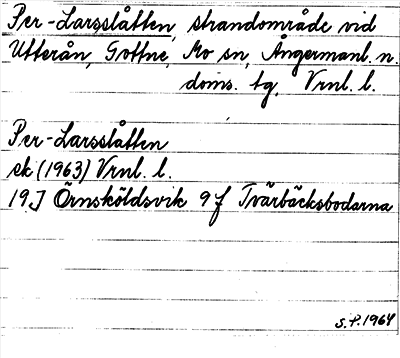 Per-Larsslåtten, strandområde vid
Utterån, Gottne, Mo sn, Ångermanl. n.
doms. tg, Vrnl. l.
Per-Larsslåtten
sk (1963) Vrnl. l.
19 J Örnsköldsvik 9 f Tvärbäcksbodarna
S.P. 1964